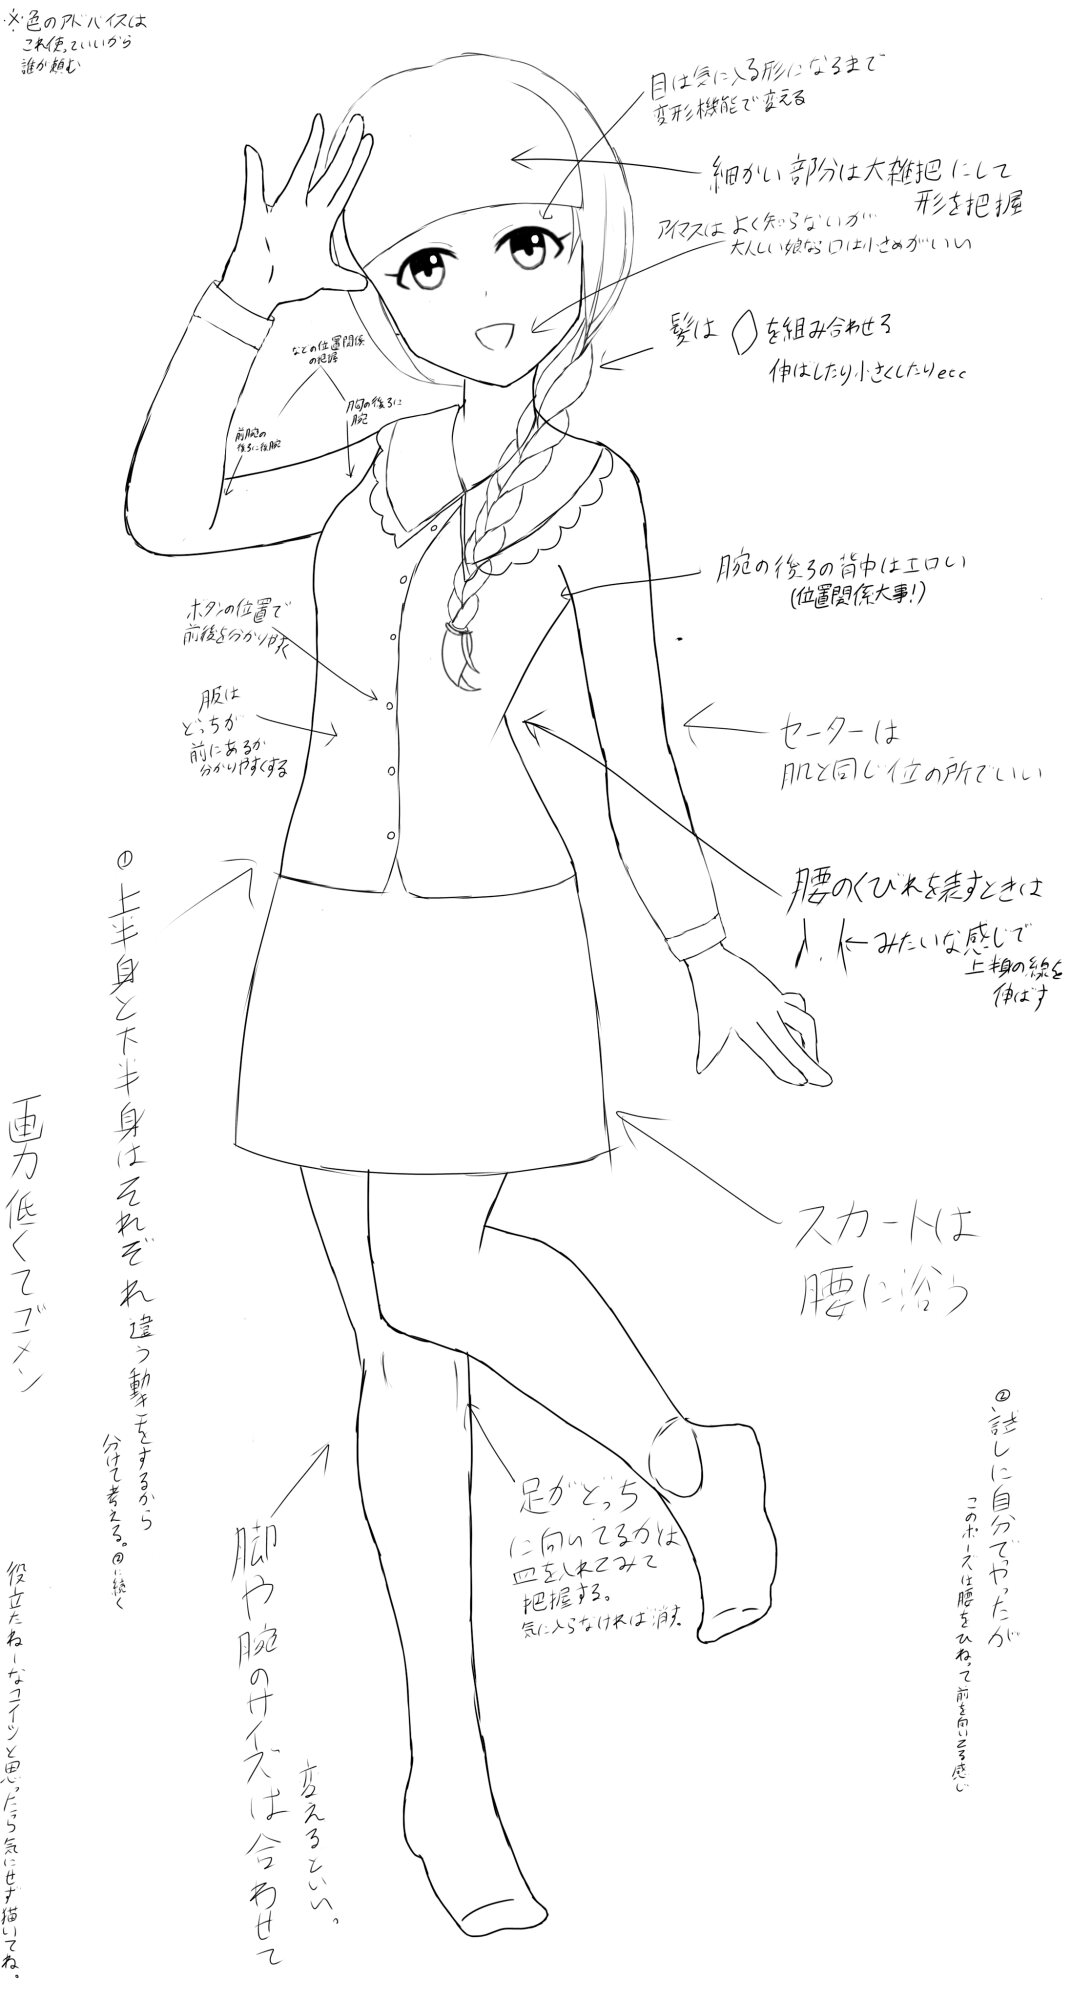 ※色のアドバイスは
これ使っていいから
誰か頼む
目は気に入る形になるまで
変形機能で変える
細かい部分は大雑把にして
形を把握
アイマスはよく知らないが
大人しい娘なら口は小さめがいい
髪は◇を組み合わせる
伸ばしたり小さくしたりecc
などの位置関係
の把握
胸の後ろに
腕
前腕の
後ろに後腕
腕の後ろの背中はエロい
(位置関係大事!)
ボタンの位置で
前後を分かりやすく
服は
どっちが
前にあるか
分かりやすくする
セーターは
肌と同じ位の所でいい
腰のくびれを表すときは
←みたいな感じで
上半身の線を
伸ばす
①上半身と下半身はそれぞれ違う動きをするから
分けて考える。②に続く
画力低くてゴメン
スカートは
腰に沿う
②試しに自分でやったが
このポーズは腰をひねって前を向いてる感じ
足がどっち
に向いてるかは
皿を入れてみて
把握する。
気に入らなければ消す。
脚や腕のサイズは合わせて
変えるといい。
役立たねーなコイツと思ったら気にせず描いてね。